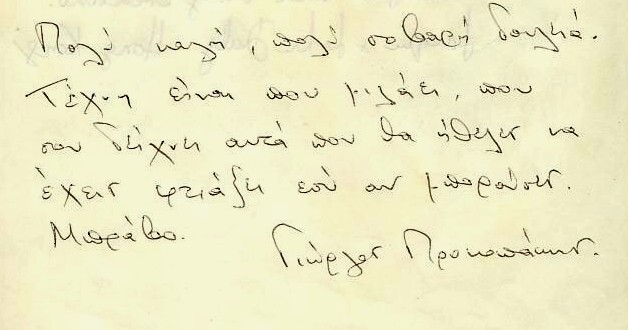 Πολύ καλή, πολύ σοβαρή δουλειά.
Τέχνη είναι που μιλάει, που
σου δείχνει αυτά που θα ήθελες να
έχεις φτιάξει εσύ αν μπορούσες.
Μπράβο.
Γιώργος Προκοπάκης.